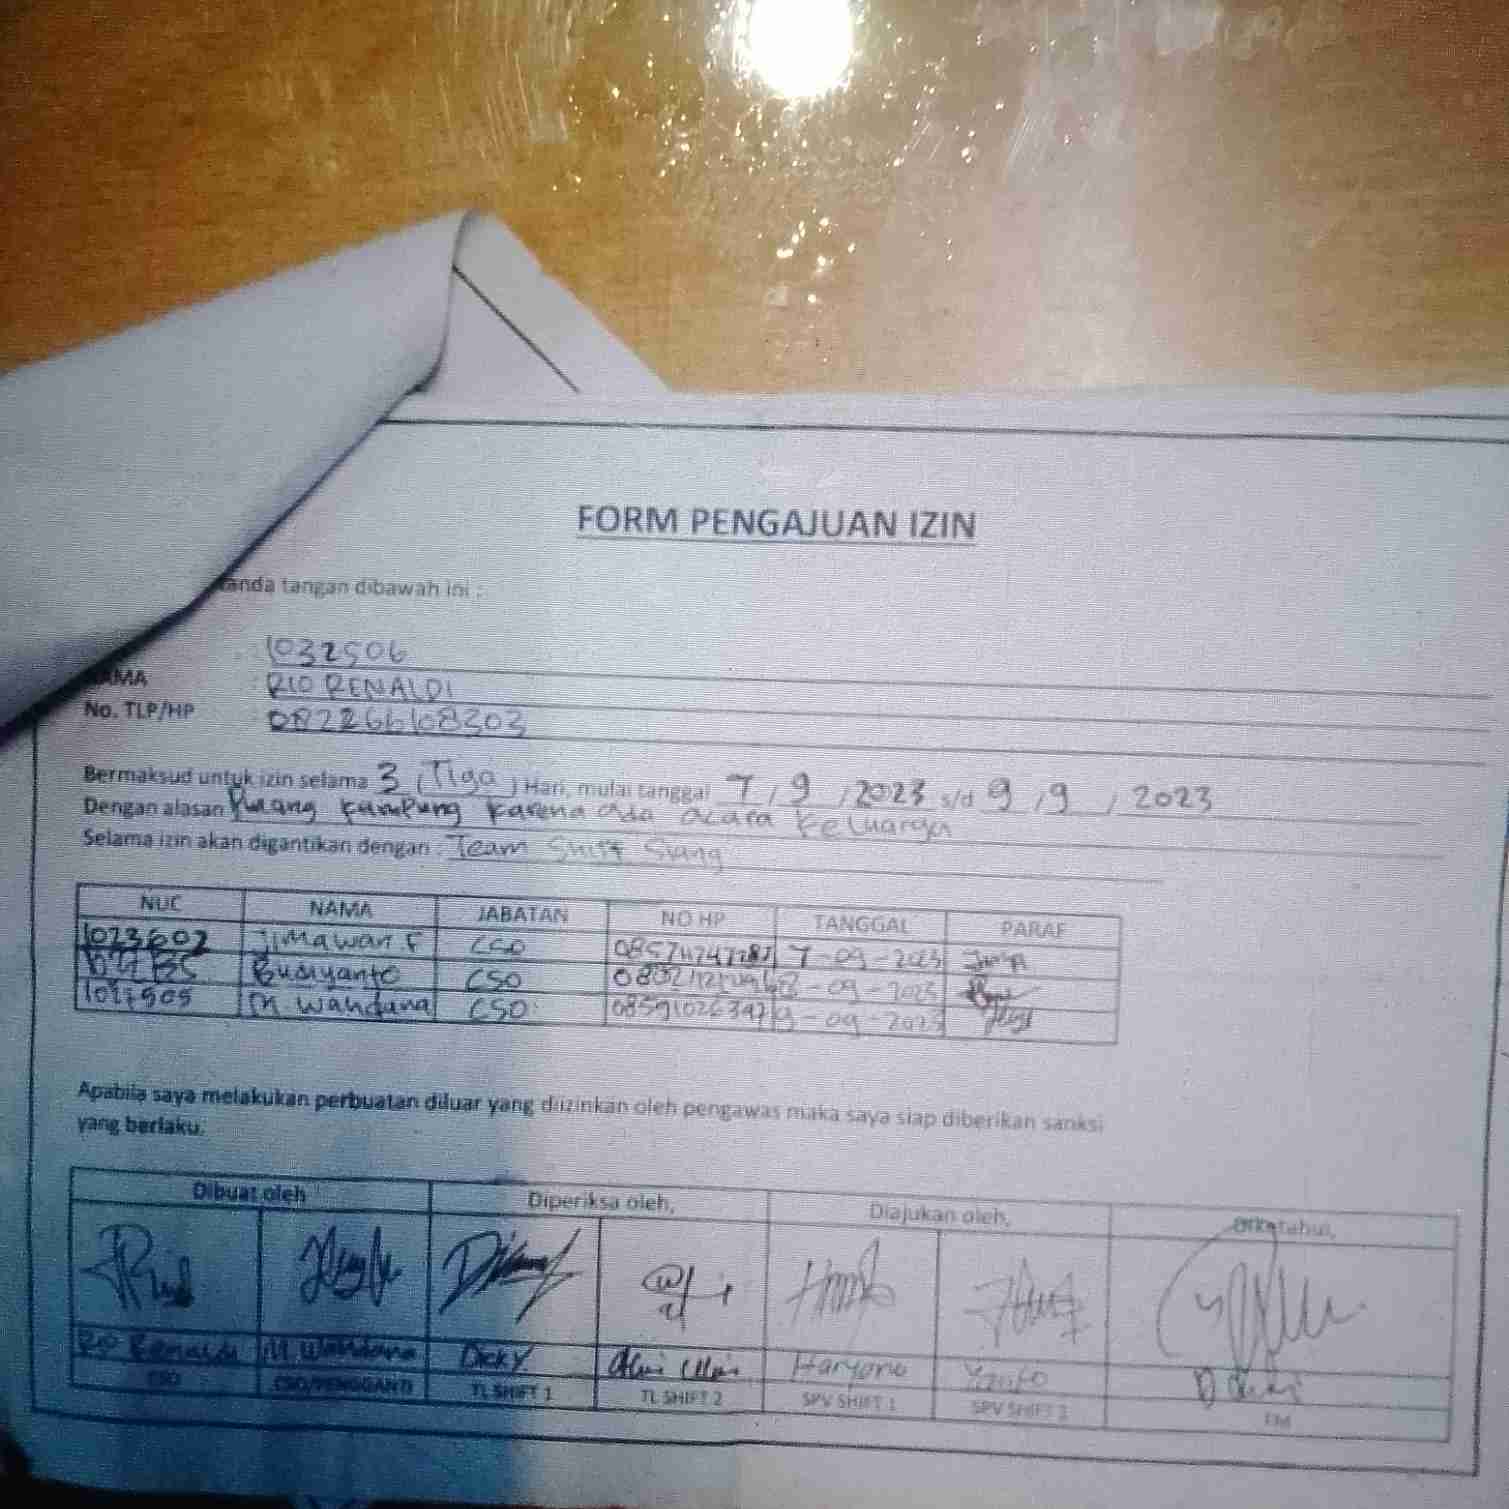 FORM PENGAJUAN IZIN
tanda tangan dibawah ini :
: 1032506
NAMA : RIO RENALDI
No. TLP/HP : 082266108303
Bermaksud untuk izin selama 3 (Tiga) Hari, mulai tanggal 7 / 9 / 2023 s/d 9 / 9 / 2023
Dengan alasan Pulang kampung karena ada acara keluarga
Selama izin akan digantikan dengan : Team Shift Siang
NUC NAMA JABATAN NO HP TANGGAL PARAF
1023602 Jimawan F CSO 7-09-2023
Budiyanto CSO 8-09-2023
1027505 M. Wandana CSO 9-09-2023
Apabila saya melakukan perbuatan diluar yang diizinkan oleh pengawas maka saya siap diberikan sanksi
yang berlaku.
Dibuat oleh Diperiksa oleh, Diajukan oleh, Diketahui,
Rio Renaldi M. Wandana Dicky Haryono
CSO CSO/PENGGANTI TL SHIFT 1 TL SHIFT 2 SPV SHIFT 1 SPV SHIFT 2